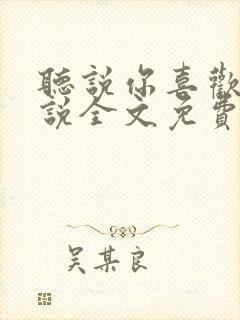 聽說你喜歡
說全文免費
吳某良